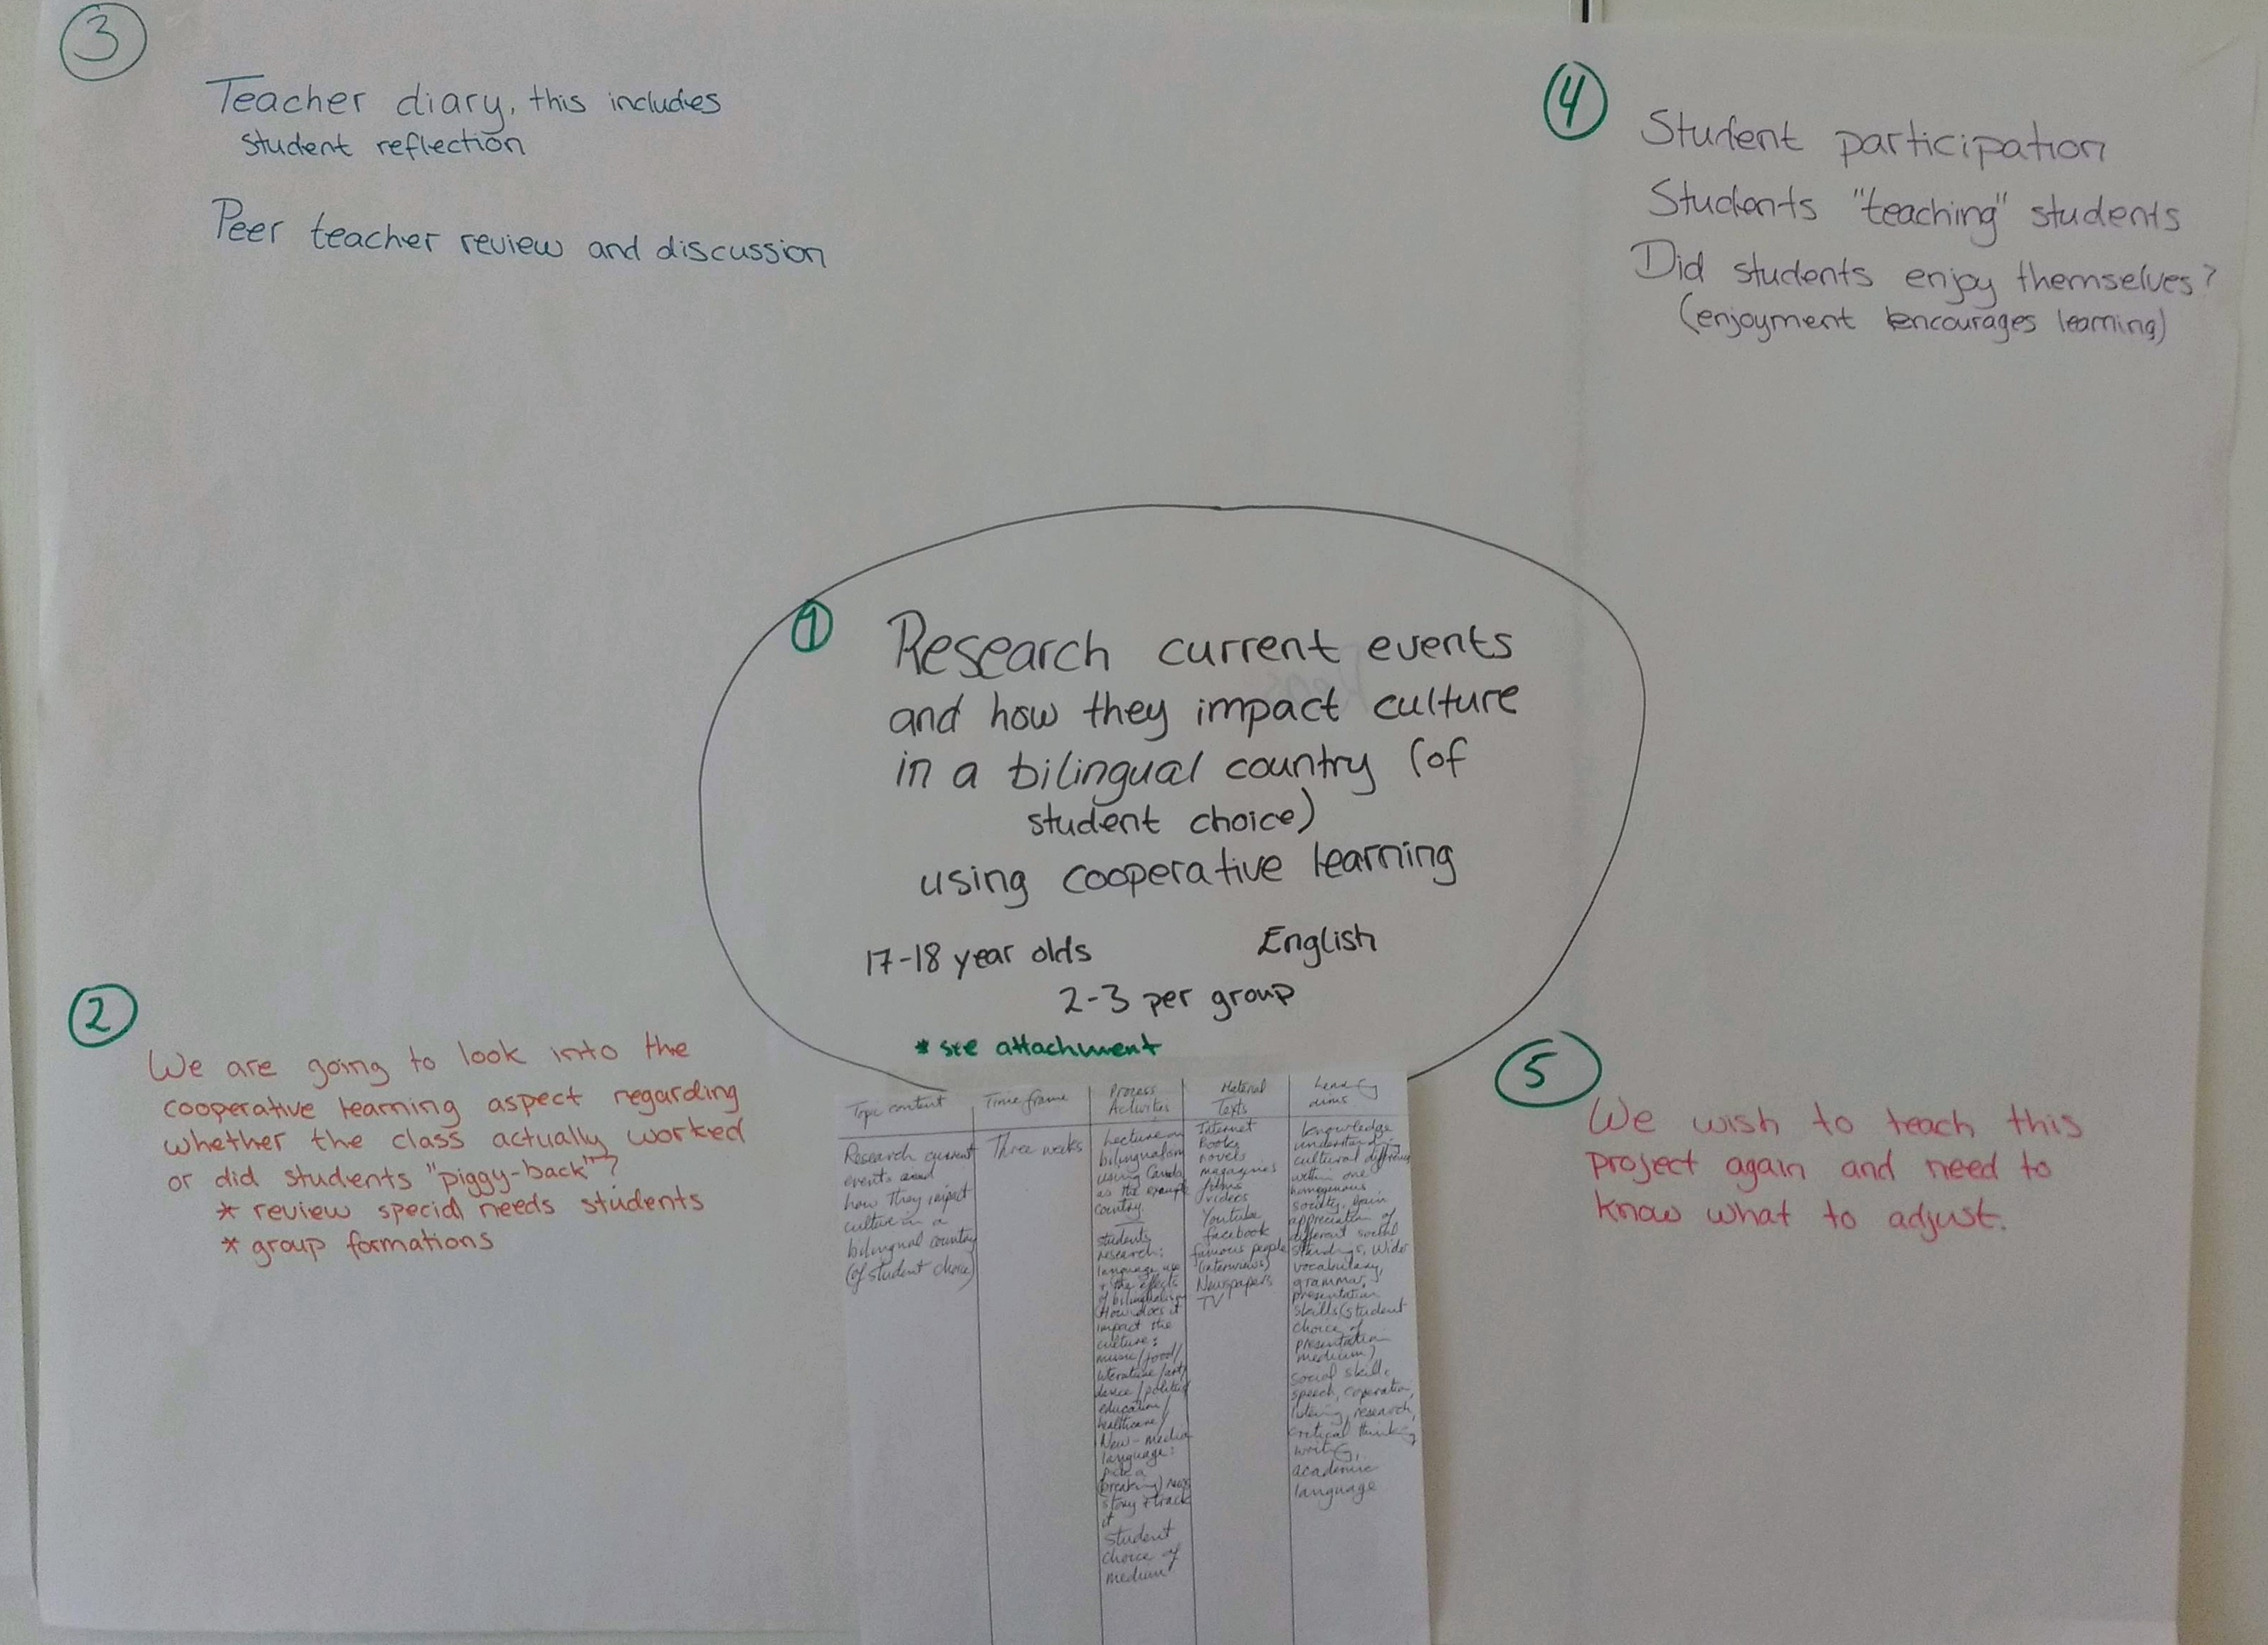 3
Teacher diary, this includes
student reflection
Peer teacher review and discussion
4
Student participation
Students "teaching" students
Did students enjoy themselves?
(enjoyment encourages learning)
1
Research current events
and how they impact culture
in a bilingual country (of
student choice)
using cooperative learning
17-18 year olds English
2-3 per group
* see attachment
2
We are going to look into the
cooperative learning aspect regarding
whether the class actually worked
or did students "piggy-back"?
* review special needs students
* group formations
5
We wish to teach this
project again and need to
know what to adjust.
Topic content
Research current
events and
how they impact
culture in a
bilingual country
(of student choice)
Time frame
Three weeks
Process
Activities
Lecture on
bilingualism
using Canada
as the example
country.
students
research:
language use
+ the effects
of bilingualism
(How does it
impact the
culture:
music/food/
literature/art/
dance/politics
education/
healthcare/
New-media
language:
pick a
(breaking) news
story + track
it
student
choice of
medium
Material
Texts
Internet
Books
novels
magazines
films
videos
Youtube
facebook
famous people
(interviews)
Newspapers
TV
Learning
aims
knowledge
understanding
cultural differences
within one
homogenous
society, gain
appreciation of
different social
standings, wider
vocabulary,
grammar,
presentation
skills (student
choice of
presentation
medium)
social skills,
speech, cooperation,
listening, research,
critical thinking
writing,
academic
language